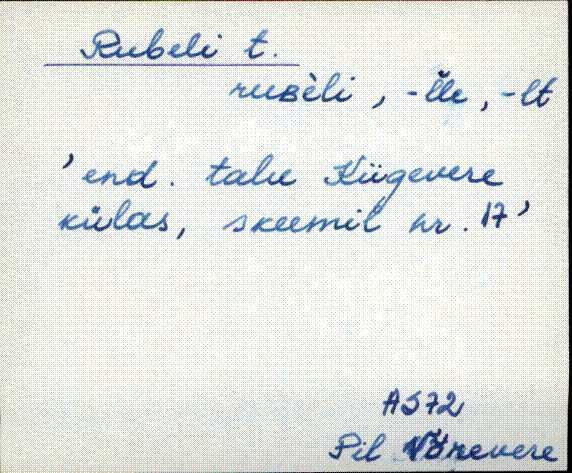 Rubeli t.
rusèli, -lle, -lt
'end. talu Kiigevere
külas, skeemil nr. 17'
AS72
Pil Võrevere